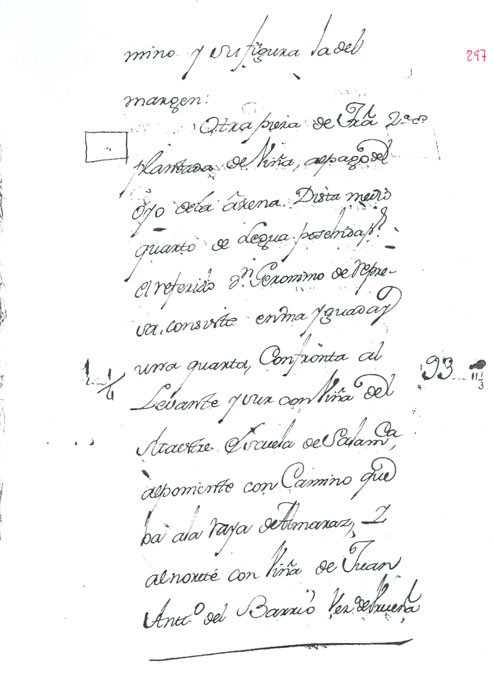 mino y su figura la del
297
margen:
Otra pieza de Trrâ 2ª
plantada de Viña, al pago del
Ojo dela arena. Dista medio
quarto de Legua posehida pr.
el referido Dn. Geronimo de Nepre-
sa, consiste en una Yguada y
una quarta, Confronta al
1 1/4
93
Levante y sur con Viña del
Maestre Escuela de Salamca,
al poniente con Camino que
ba ala raya de Almaraz, Y
al norte con Viña de Juan
Antto. del Barrio Vez. de